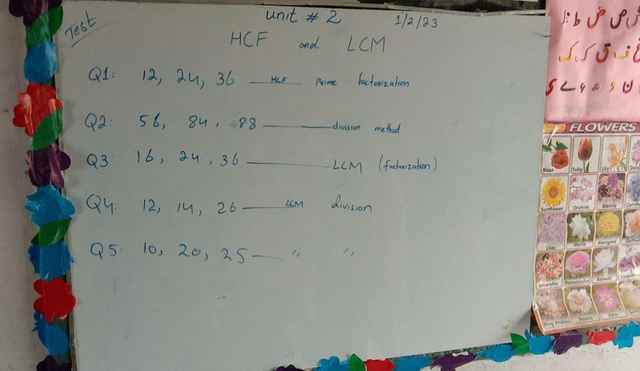 Test
unit # 2
1/2/23
HCF and LCM
Q1: 12, 24, 36 — HCF Prime factorization
Q2: 56, 84, 88 — division method
Q3: 16, 24, 36 — LCM (factorization)
Q4: 12, 14, 26 — LCM division
Q5: 10, 20, 25 — " "
ص ض ط
ق ک
ن و ء ی ے
FLOWERS
Rose Tulip Lily
Sunflower Orchids Dahlia
Lilac Marigold
Amaryllis Ranunculus